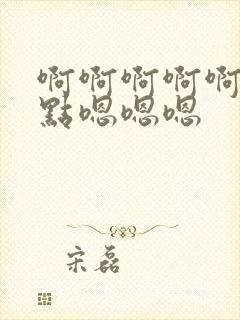 啊啊啊啊啊
點嗯嗯嗯
宋磊